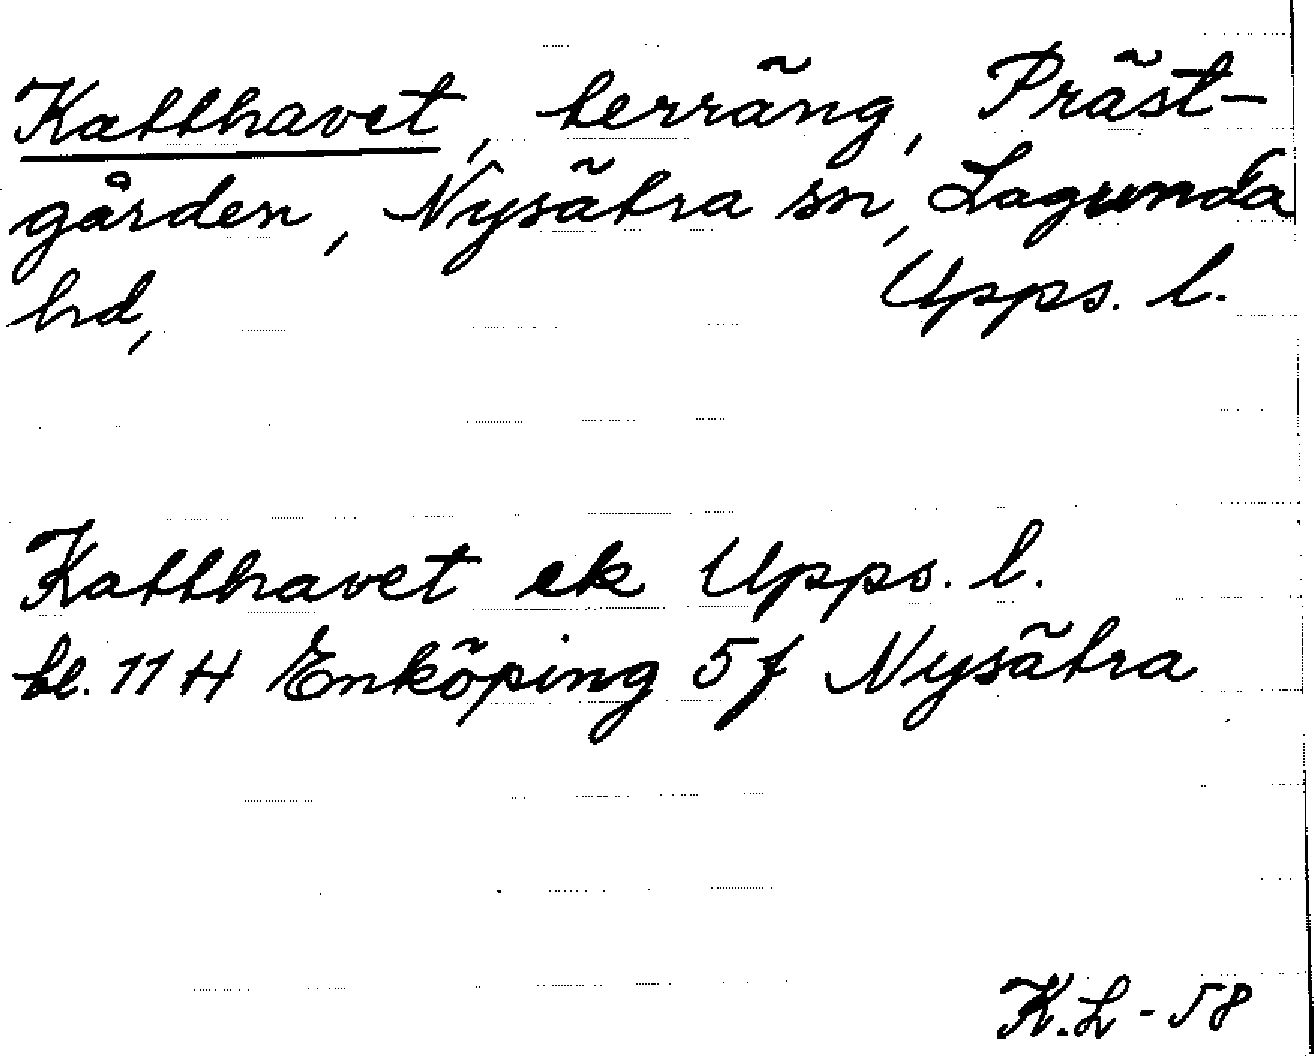 Katthavet, terräng, Präst-
gården, Nysätra sn, Lagunda
hd, Upps. l.
Katthavet ek Upps. l.
bl. 11 H Enköping 5 f Nysätra
K.L - 58